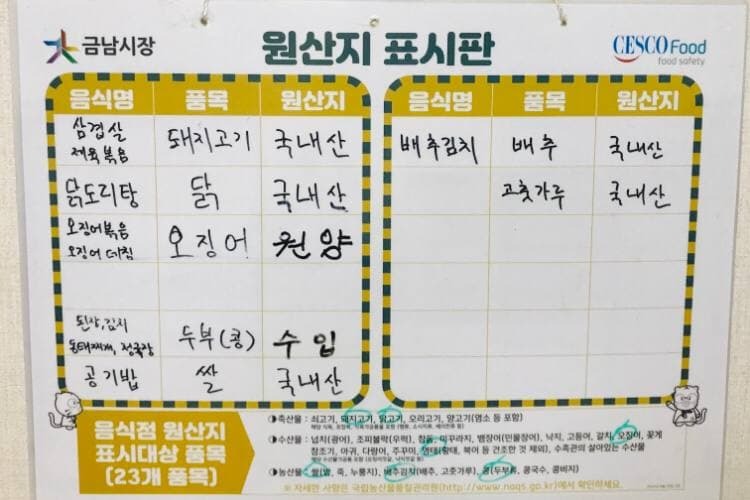 금남시장
원산지 표시판
CESCO Food
food safety
음식명 품목 원산지
삼겹살
제육볶음
돼지고기 국내산
닭도리탕 닭 국내산
오징어볶음
오징어데침
오징어 원양
된장,김치
동태찌개, 청국장
두부(콩) 수입
공기밥 쌀 국내산
음식명 품목 원산지
배추김치 배추 국내산
고춧가루 국내산
음식점 원산지
표시대상 품목
(23개 품목)
축산물 : 쇠고기, 돼지고기, 닭고기, 오리고기, 양고기(염소 등 포함)
수산물 : 넙치(광어), 조피볼락(우럭), 참돔, 미꾸라지, 뱀장어(민물장어), 낙지, 고등어, 갈치, 오징어, 꽃게
참조기, 아귀, 다랑어, 주꾸미, 명태(황태, 북어 등 건조한 것 제외), 수족관의 살아있는 수산물
농산물 : 쌀(밥, 죽, 누룽지), 배추김치(배추, 고춧가루), 콩(두부류, 콩국수, 콩비지)
※ 자세한 사항은 국립농산물품질관리원(http://www.naqs.go.kr)에서 확인하세요.